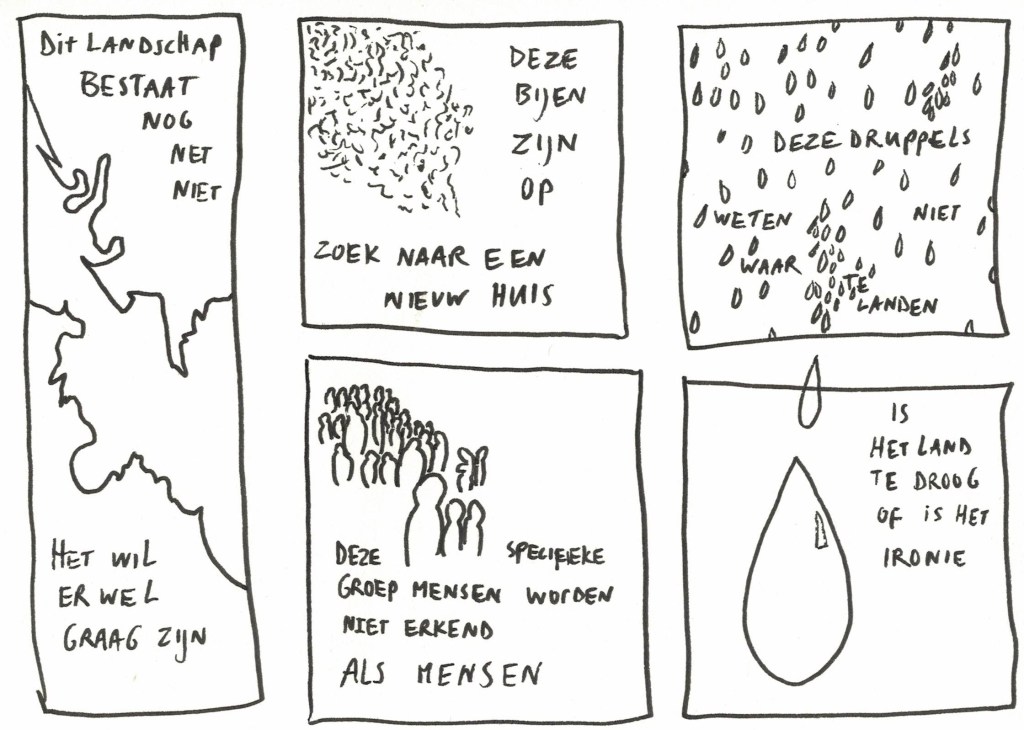 Dit LANDSCHAP
BESTAAT
NOG
NET
NIET
HET WIL
ER WEL
GRAAG ZIJN
DEZE
BIJEN
ZIJN
OP
ZOEK NAAR EEN
NIEUW HUIS
DEZE SPECIFIEKE
GROEP MENSEN WORDEN
NIET ERKEND
ALS MENSEN
DEZE DRUPPELS
WETEN NIET
WAAR TE
LANDEN
IS
HET LAND
TE DROOG
OF iS HET
IRONIE